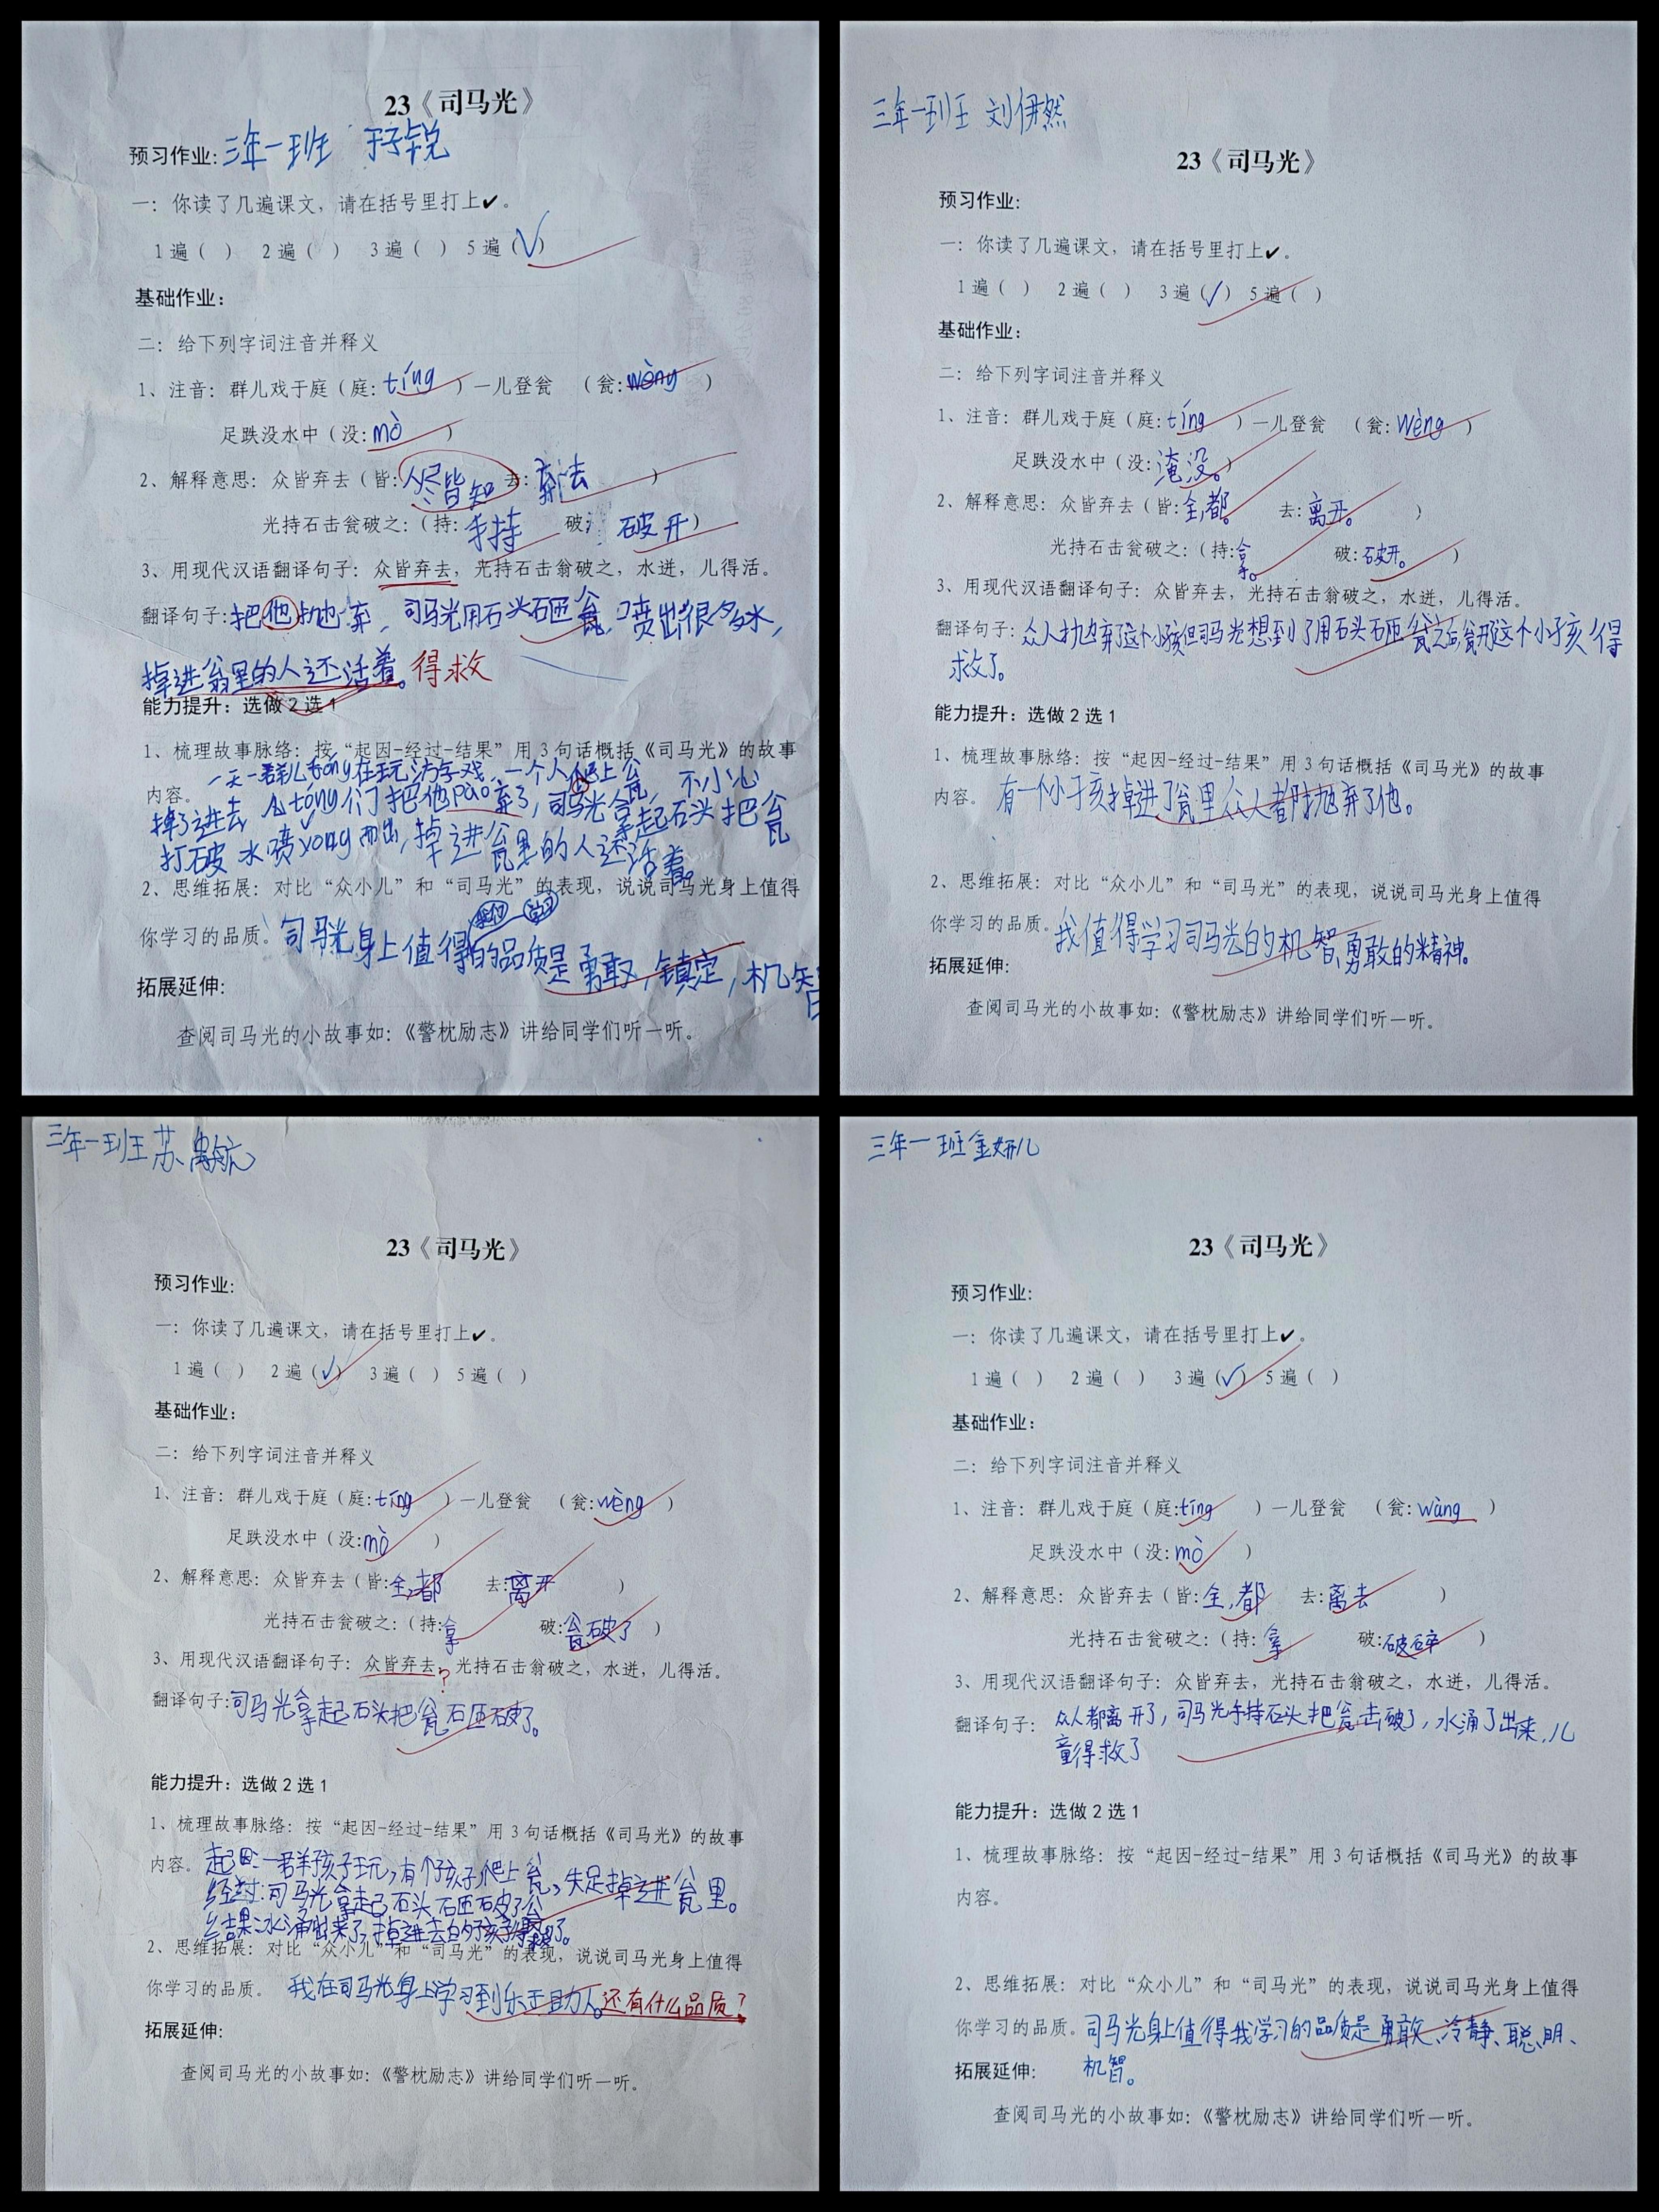 23《司马光》
预习作业:三年一班 于子锐
一: 你读了几遍课文, 请在括号里打上✔。
1遍 ( ) 2遍 ( ) 3遍 ( ) 5遍 (√)
基础作业:
二: 给下列字词注音并释义
1、注音: 群儿戏于庭 (庭: tíng ) 一儿登瓮 (瓮: wèng )
足跌没水中 (没: mò )
2、解释意思: 众皆弃去 (皆: 人尽皆知 去: 弃去 )
光持石击瓮破之: (持: 手持 破: 破开)
3、用现代汉语翻译句子: 众皆弃去, 光持石击翁破之, 水迸, 儿得活。
翻译句子: 把他抛弃, 司马光用石头砸瓮, 喷出很多水,
掉进翁里的人还活着。得救
能力提升: 选做2选1
1、梳理故事脉络: 按“起因-经过-结果”用3句话概括《司马光》的故事
内容。 一天一群儿tóng在玩游戏, 一个人爬上瓮, 不小心
掉了进去 儿tóng们把他pāo弃了, 司马光拿起石头把瓮
打破 水喷yǒng而出, 掉进瓮里的人还活着。
2、思维拓展: 对比“众小儿”和“司马光”的表现, 说说司马光身上值得
你学习的品质。司马光身上值得的品质是勇敢, 镇定, 机智
拓展延伸:
查阅司马光的小故事如:《警枕励志》讲给同学们听一听。
三年一班 刘伊然
23《司马光》
预习作业:
一: 你读了几遍课文, 请在括号里打上✔。
1遍 ( ) 2遍 ( ) 3遍 (√) 5遍 ( )
基础作业:
二: 给下列字词注音并释义
1、注音: 群儿戏于庭 (庭: tíng ) 一儿登瓮 (瓮: wèng )
足跌没水中 (没: 淹没。)
2、解释意思: 众皆弃去 (皆: 全,都。 去: 离开。 )
光持石击瓮破之: (持: 拿。 破: 破开。 )
3、用现代汉语翻译句子: 众皆弃去, 光持石击翁破之, 水迸, 儿得活。
翻译句子: 众人抛弃了这个小孩但司马光想到了用石头砸瓮之后瓮开这个小孩得
救了。
能力提升: 选做2选1
1、梳理故事脉络: 按“起因-经过-结果”用3句话概括《司马光》的故事
内容。 有一个小孩掉进了瓮里众人都抛弃了他。
2、思维拓展: 对比“众小儿”和“司马光”的表现, 说说司马光身上值得
你学习的品质。我值得学习司马光的机智,勇敢的精神。
拓展延伸:
查阅司马光的小故事如:《警枕励志》讲给同学们听一听。
三年一班 苏禹航
23《司马光》
预习作业:
一: 你读了几遍课文, 请在括号里打上✔。
1遍 ( ) 2遍 (√) 3遍 ( ) 5遍 ( )
基础作业:
二: 给下列字词注音并释义
1、注音: 群儿戏于庭 (庭: tíng ) 一儿登瓮 (瓮: wèng )
足跌没水中 (没: mò )
2、解释意思: 众皆弃去 (皆: 全,都 去: 离开 )
光持石击瓮破之: (持: 拿 破: 瓮破了 )
3、用现代汉语翻译句子: 众皆弃去?光持石击翁破之, 水迸, 儿得活。
翻译句子: 司马光拿起石头把瓮砸破了。
能力提升: 选做2选1
1、梳理故事脉络: 按“起因-经过-结果”用3句话概括《司马光》的故事
内容。 起因: 一群孩子玩, 有个孩子爬上瓮, 失足掉进瓮里。
经过: 司马光拿起石头砸破了瓮
结果: 水涌出来了, 掉进去的孩子得救了。
2、思维拓展: 对比“众小儿”和“司马光”的表现, 说说司马光身上值得
你学习的品质。 我在司马光身上学习到乐于助人。还有什么品质?
拓展延伸:
查阅司马光的小故事如:《警枕励志》讲给同学们听一听。
三年一班 金妍儿
23《司马光》
预习作业:
一: 你读了几遍课文, 请在括号里打上✔。
1遍 ( ) 2遍 ( ) 3遍 (√) 5遍 ( )
基础作业:
二: 给下列字词注音并释义
1、注音: 群儿戏于庭 (庭: tíng ) 一儿登瓮 (瓮: wàng )
足跌没水中 (没: mò )
2、解释意思: 众皆弃去 (皆: 全,都 去: 离去 )
光持石击瓮破之: (持: 拿 破: 破碎 )
3、用现代汉语翻译句子: 众皆弃去, 光持石击翁破之, 水迸, 儿得活。
翻译句子: 众人都离开了, 司马光手持石头把瓮击破了, 水涌了出来, 儿
童得救了
能力提升: 选做2选1
1、梳理故事脉络: 按“起因-经过-结果”用3句话概括《司马光》的故事
内容。
2、思维拓展: 对比“众小儿”和“司马光”的表现, 说说司马光身上值得
你学习的品质。司马光身上值得我学习的品质是勇敢、冷静、聪明、
拓展延伸: 机智。
查阅司马光的小故事如:《警枕励志》讲给同学们听一听。